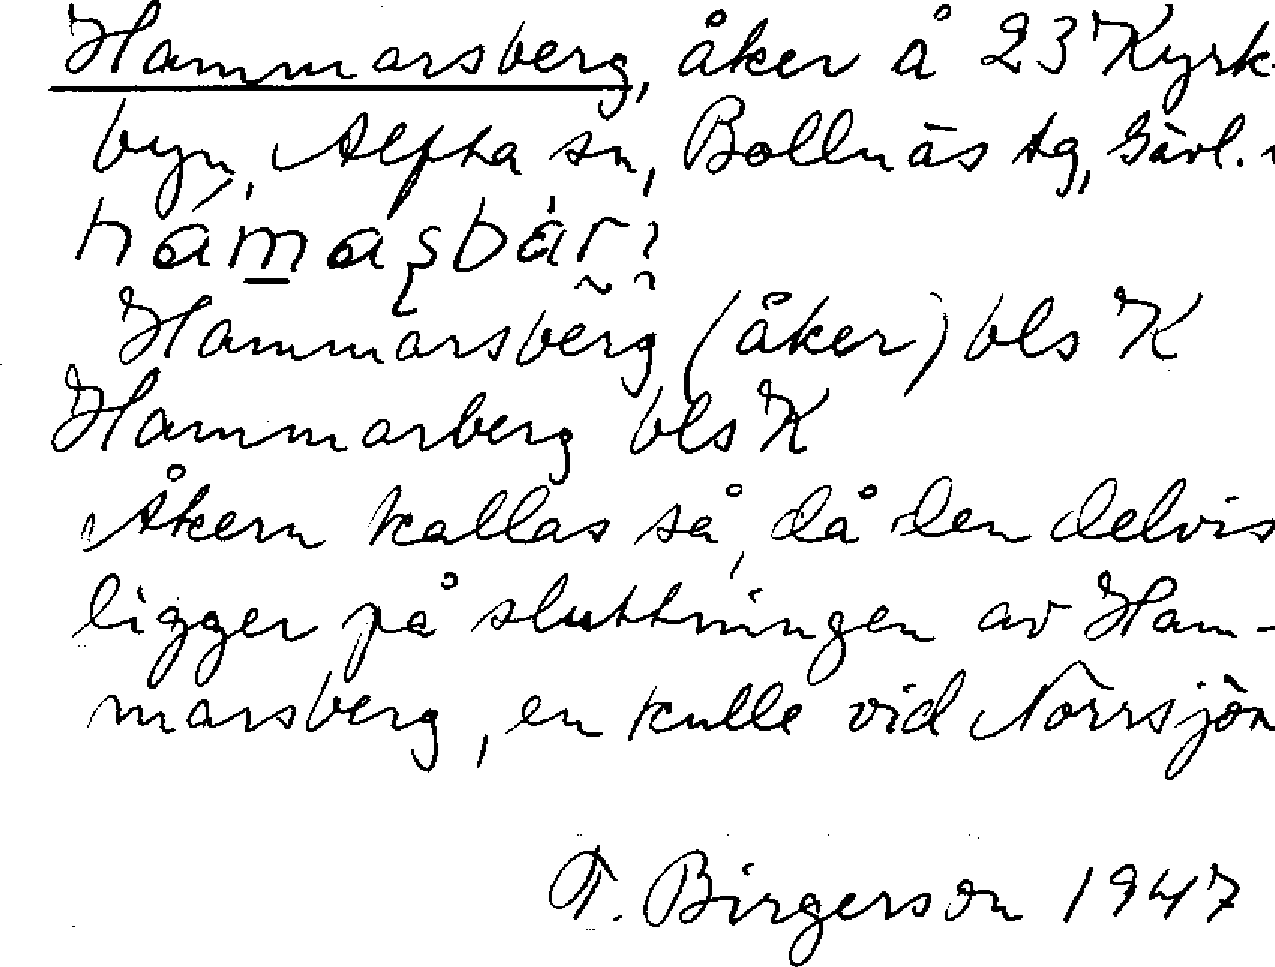 Hammarsberg, åker å 23 Kyrk-
byn, Alfta sn, Bollnäs tg, Gävl.
Hammarsberg (åker) bls K
Hammarberg bls K
Åkern kallas så, då den delvis
ligger på sluttningen av Ham-
marsberg, en kulle vid Norrsjön
T. Birgerson 1947